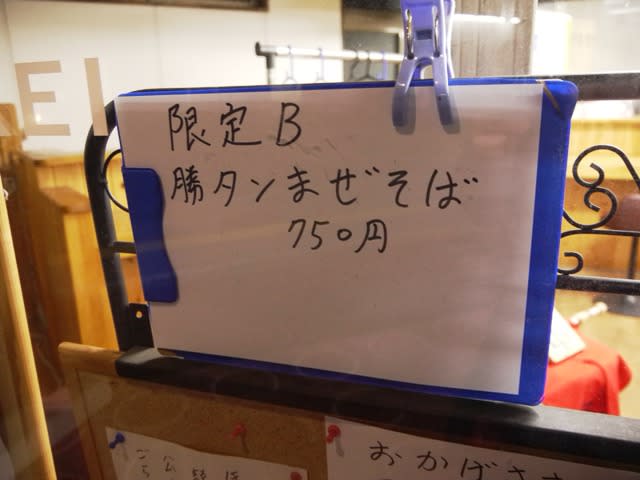 KEI
限定B
勝タンまぜそば
750円
おかげさま